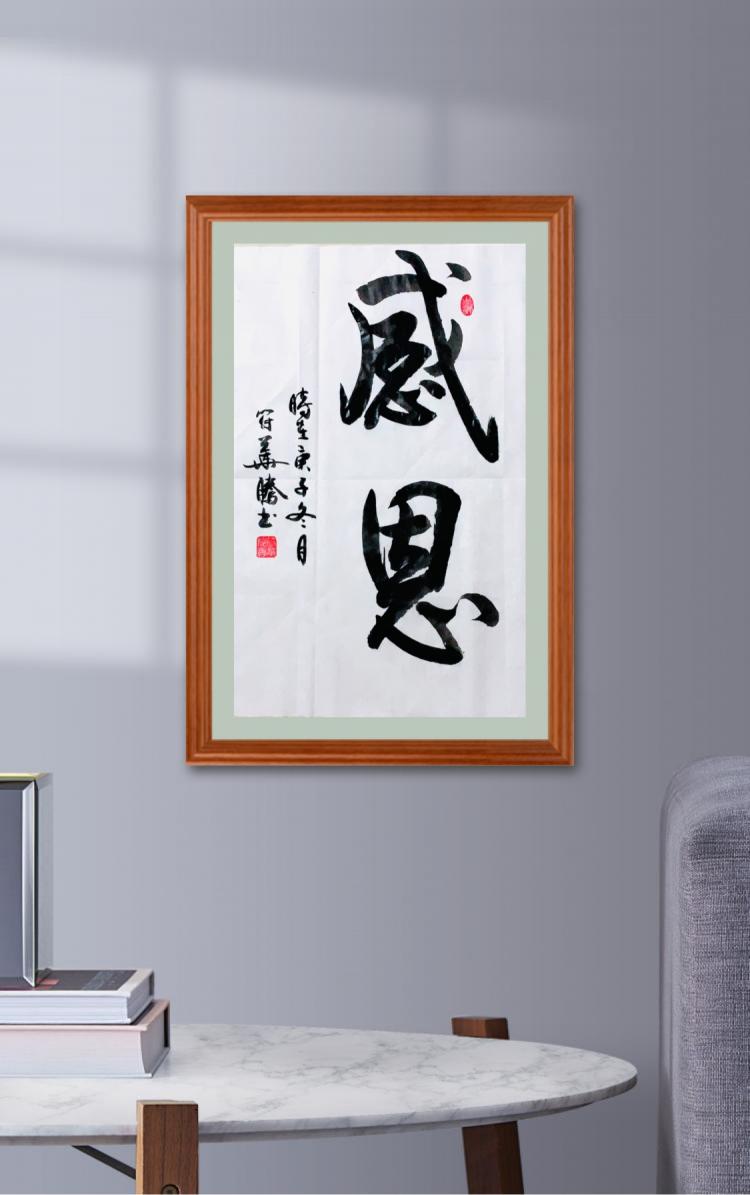 感恩
時在庚子冬月
符華騰书